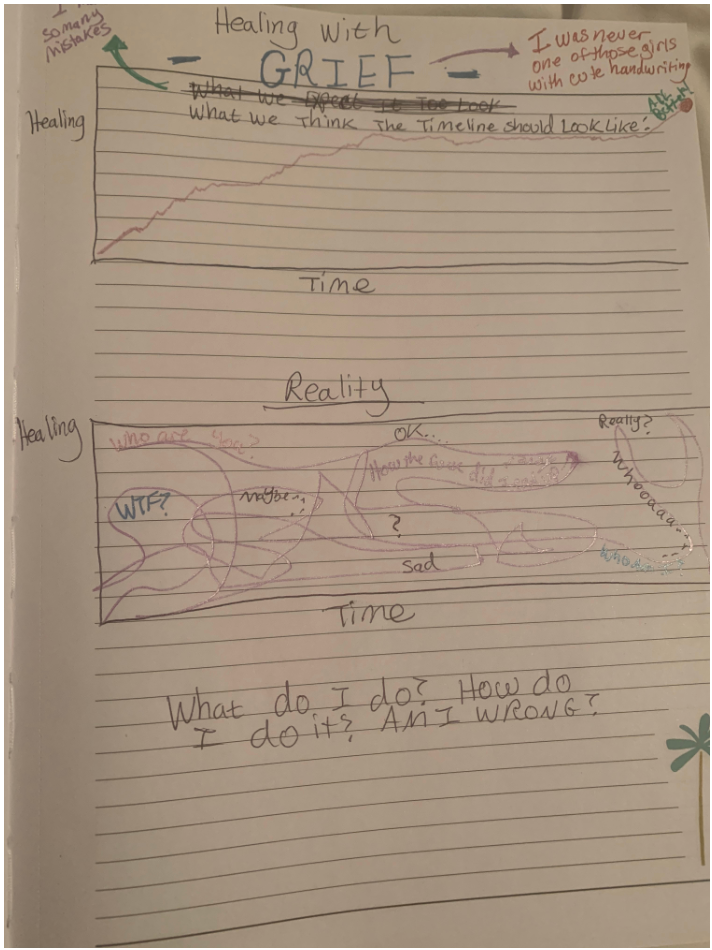 so many
mistakes
Healing with
- GRIEF -
I was never
one of those girls
with cute handwriting
What we Expect it Too Look
What we Think The Timeline should Look Like:
All
Healing
Time
Reality
Healing
Who are you?
OK...
Really?
How the
did
WTF?
maybe...
Whooaaa...
?
sad
Time
What do I do? How do
I do it? AM I WRONG?